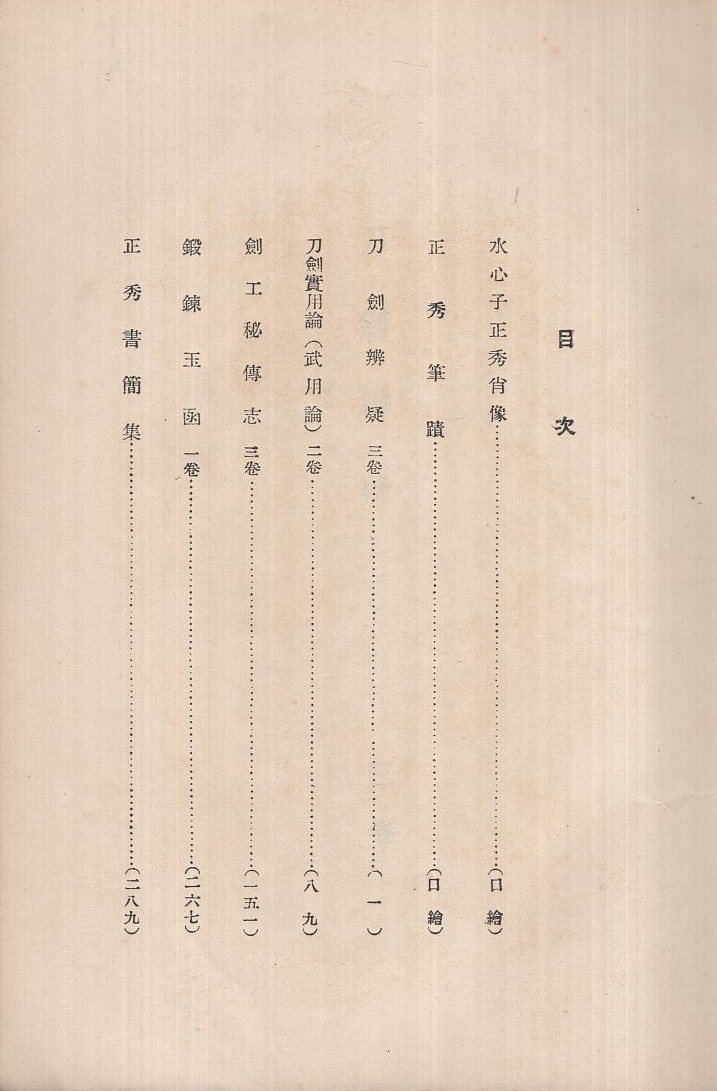 目次
水心子正秀肖像……(口繪)
正秀筆蹟……(口繪)
刀劍辨疑三卷……(一)
刀劍實用論(武用論)二卷……(八九)
劍工秘傳志三卷……(一五一)
鍛鍊玉函一卷……(二六七)
正秀書簡集……(二八九)